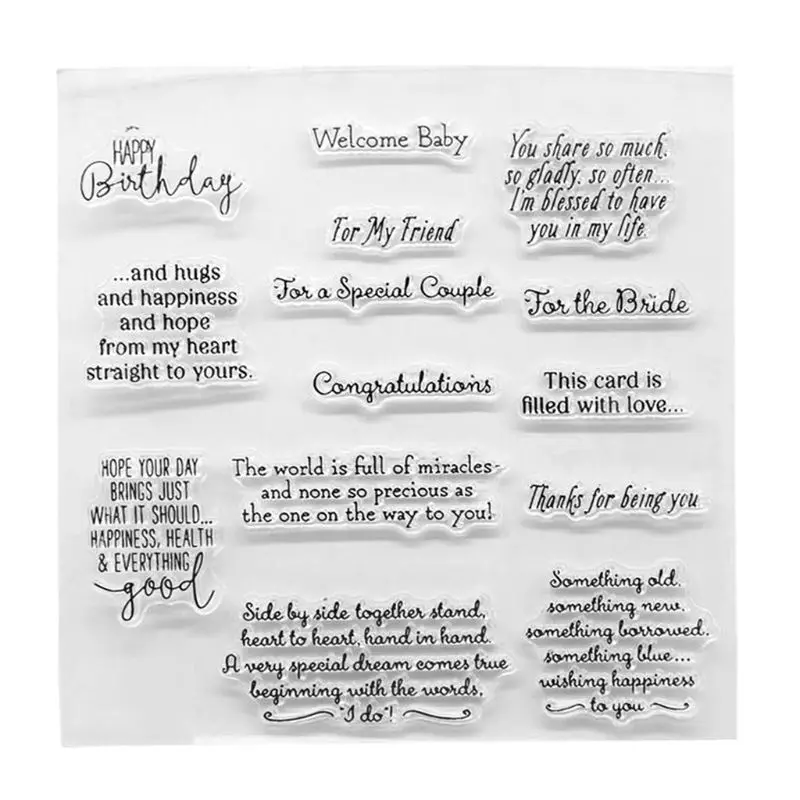 HAPPY
Birthday
...and hugs
and happiness
and hope
from my heart
straight to yours.
HOPE YOUR DAY
BRINGS JUST
WHAT IT SHOULD...
HAPPINESS, HEALTH
& EVERYTHING
good
Welcome Baby
For My Friend
For a Special Couple
Congratulations
The world is full of miracles-
and none so precious as
the one on the way to you!
Side by side together stand,
heart to heart, hand in hand.
A very special dream comes true
beginning with the words,
"I do"!
You share so much,
so gladly, so often...
I'm blessed to have
you in my life.
For the Bride
This card is
filled with love...
Thanks for being you
Something old,
something new,
something borrowed,
something blue...
wishing happiness
to you